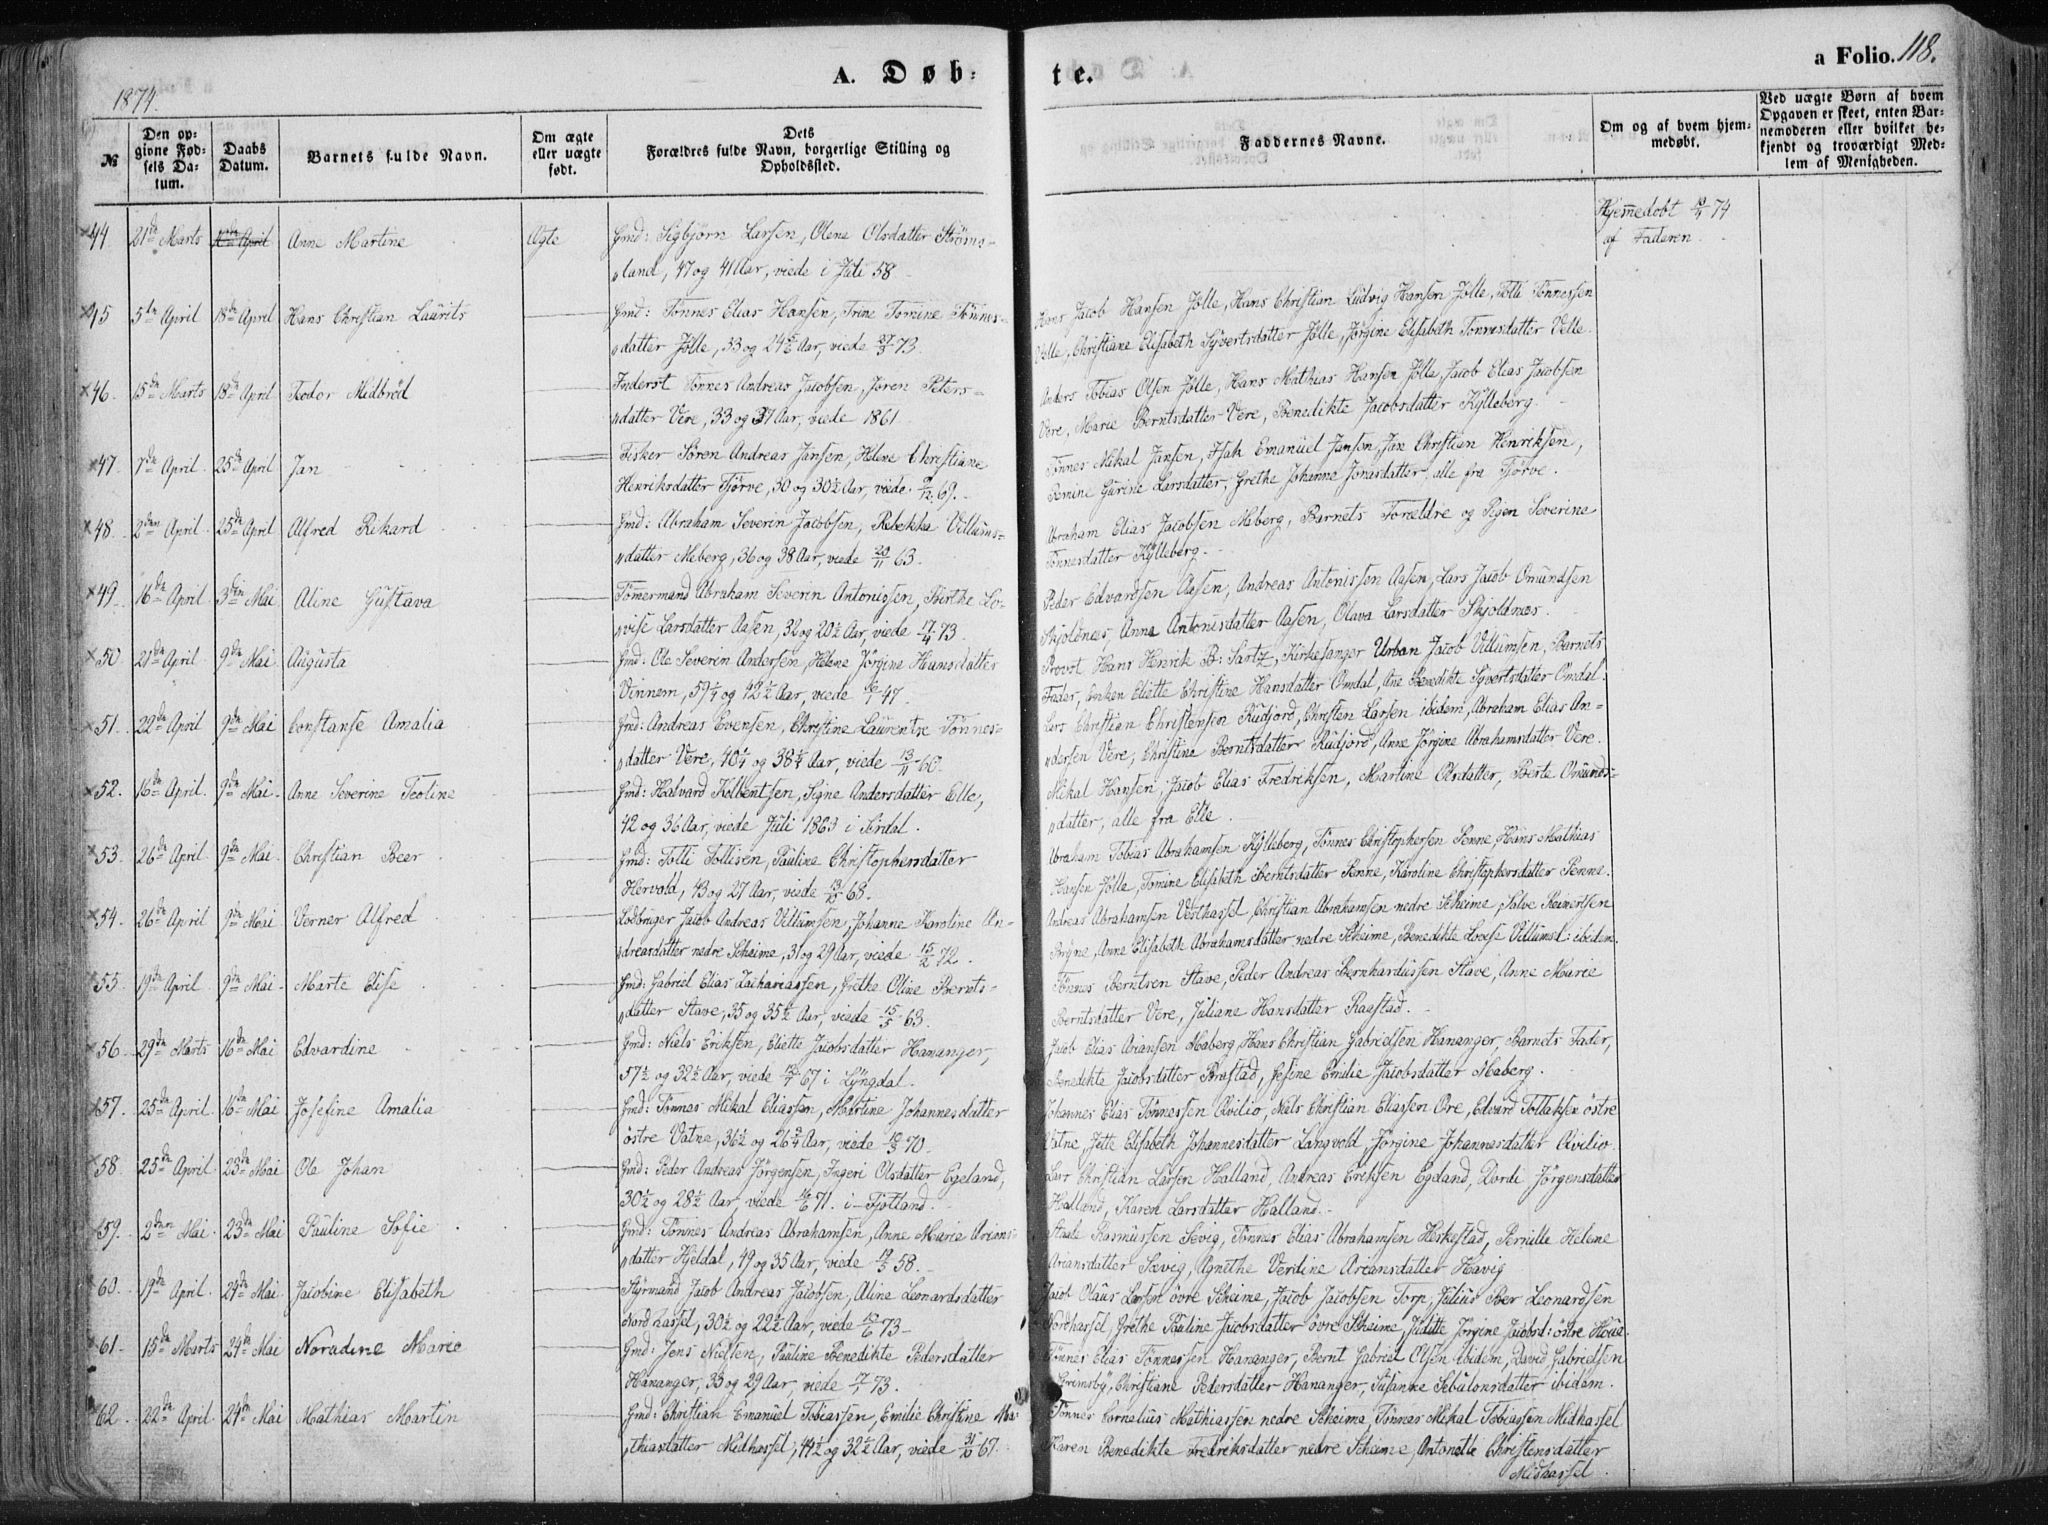 A. Døb=
te.
a Folio. 118.
1874.
№
Den op=
givne Fød=
sels Da=
tum.
Daabs
Datum.
Barnets fulde Navn.
Om ægte
eller uægte
født.
Dets
Forældres fulde Navn, borgerlige Stilling og
Opholdssted.
Faddernes Navne.
Om og af hvem hjem=
medøbt.
Ved uægte Børn af hvem
Opgaven er skeet, enten Bar=
nemoderen eller hvilket be=
kjendt og troværdigt Med=
lem af Menigheden.
44. 21de Marts April Anne Martine Ægte Gmd: Sigbjørn Larsen, Olene Olsdatter Strøms=
land, 47 og 41 Aar, viede i Juli 58.
Hjemmedøbt 74
af Faderen.
45 5te April 18de April Hans Christian Laurits Gmd: Tønnes Elias Hansen, Trine Tomine Tønnes=
datter Jølle, 33 og 24½ Aar, viede 73.
Hans Jacob Hansen Jølle, Hans Christian Ludvig Hansen Jølle, Tolli Tønnessen
Velle, Christiane Elisabeth Syvertsdatter Jølle, Jørgine Elisabeth Tønnesdatter Velle.
46. 15de Marts 18de April Teodor Midbrød Inderst Tønnes Andreas Jacobsen, Joren Peters=
datter Vere, 33 og 37 Aar, viede 1861.
Anders Tobias Olsen Jølle, Hans Mathias Hansen Jølle, Jacob Elias Jacobsen
Vere, Marie Berntsdatter Vere, Benedikte Jacobsdatter Kylleberg.
47. 7de April 25de April Jan Fisker Søren Andreas Jansen, Helene Christiane
Henriksdatter Tjørve, 30 og 30½ Aar, viede 69.
Tønnes Mikal Jansen, Isak Emanuel Jansen, Jan Christian Henriksen,
Pernine Gurine Larsdatter, Grethe Johanne Jonasdatter, alle fra Tjørve.
48. 2den April 25de April Alfred Rikard Gmd: Abraham Severin Jacobsen, Rebekka Villums=
datter Meberg, 36 og 38 Aar, viede 20/11 63.
Abraham Elias Jacobsen Meberg, Barnets Forældre og Pigen Severine
Tønnesdatter Kylleberg.
49. 16de April 3die Mai Aline Gustava Tømermand Abraham Severin Antonissen, Birthe Lo=
vise Larsdatter Aasen, 32 og 20½ Aar, viede 17/4 73.
Peder Edvardsen Aasen, Andreas Antonissen Aasen, Lars Jacob Omundsen
Skjoldnæs, Anna Antonisdatter Aasen, Olava Larsdatter Skjoldnæs.
50. 21de April 9de Mai Augusta Gmd: Ole Severin Andersen, Helene Jørgine Hansdatter
Vinnem, 59¼ og 42½ Aar, viede 47.
Provst Hans Henrik B: Sartz, Kirkesanger Urban Jacob Villumsen, Barnets
Fader, Enken Eliette Christine Hansdatter Omdal, Ane Benedikte Syvertsdatter Omdal.
51. 22de April 9de Mai Constanse Amalia Gmd: Andreas Evensen, Christine Laurentse Tønnes=
datter Vere, 40¼ og 38¼ Aar, viede 13/11 60.
Lars Christian Christensen Rudjord, Christen Larsen ibidem, Abraham Elias An=
dersen Vere, Christine Berntsdatter Rudjord, Anne Jørgine Abrahamsdatter Vere.
52. 16de April 9de Mai Anne Severine Teoline Gmd: Halvard Kolbentsen, Signe Andersdatter Elle,
42 og 36 Aar, viede Juli 1863 i Sirdal.
Mikal Hansen, Jacob Elias Fredriksen, Martine Olsdatter, Berte Omunds=
datter, alle fra Elle.
53. 26de April 9de Mai Christian Beer Gmd: Tolli Tollisen, Pauline Christophersdatter
Hervold, 43 og 27 Aar, viede 13/10 68.
Abraham Tobias Abrahamsen Kylleberg, Tønnes Christophersen Penne, Hans Mathias
Hansen Jølle, Tomine Elisabeth Berntsdatter Penne, Karoline Christophersdatter Penne.
54. 26de April 9de Mai Verner Alfred Lodbruger Jacob Andreas Villumsen, Johanne Karoline An=
dreasdatter nedre Skeime, 31 og 29 Aar, viede 15/2 72.
Andreas Abrahamsen Vesthassel, Christian Abrahamsen nedre Skeime, Salve Reinertsen
Bryne, Anne Elisabeth Abrahamsdatter nedre Skeime, Benedikte Lovise Villumsd: ibidem.
55. 19de April 9de Mai Marte Elise Gmd: Gabriel Elias Zachariassen, Grethe Oline Bernts=
datter Stave, 35 og 35½ Aar, viede 15/5 63.
Tønnes Berntsen Stave, Peder Andreas Bernhardussen Stave, Anne Marie
Berntsdatter Vere, Juliane Hansdatter Raastad.
56. 29de Marts 16de Mai Edvardine Gmd: Niels Eriksen, Eliette Jacobsdatter Hananger,
57½ og 32½ Aar, viede 67 i Lyngdal.
Jacob Elias Ariansen Maberg, Hans Christian Gabrielsen Hananger, Barnets Fader,
Benedikte Jacobsdatter Braastad, Gesine Emilie Jacobsdatter Maberg.
57. 25de April 16de Mai Josefine Amalia Gmd: Tønnes Mikal Eliassen, Martine Johannesdatter
østre Vatne, 36½ og 26¾ Aar, viede 70.
Johannes Elias Tønnessen Qvilio, Niels Christian Eliassen Ore, Edvard Tollaksen østre
Vatne, Jette Elisabeth Johannesdatter Langvold, Jørgine Johannesdatter Qvilio.
58. 25de April 23de Mai Ole Johan Gmd: Peder Andreas Jørgensen, Ingeri Olsdatter Egeland,
30½ og 28½ Aar, viede 71. i Fjotland.
Lars Christian Larsen Halland, Andreas Eriksen Egeland, Dordi Jørgensdatter
Halland, Karen Larsdatter Halland.
59. 2den Mai 23de Mai Pauline Sofie Gmd: Tønnes Andreas Abrahamsen, Anne Marie Arians=
datter Hjeldal, 49 og 35 Aar, viede 58.
Staale Rasmussen Sævig, Tønnes Elias Abrahamsen Heskestad, Pernille Helene
Ariansdatter Sævig, Agnethe Verdine Ariansdatter Høvig
60. 19de April 24de Mai Jacobine Elisabeth Styrmand Jacob Andreas Jacobsen, Aline Leonardsdatter
Nordhassel, 30½ og 22½ Aar, viede 73
Jacob Olaus Larsen øvre Skeime, Jacob Jacobsen Torp, Julius Ber Leonardsen
Nordhassel, Grethe Pauline Jacobsdatter øvre Skeime, Juditte Jørgine Jacobsd: østre Houe.
61. 15de Marts 24de Mai Noradine Marie Gmd: Jens Nielsen, Pauline Benedikte Pedersdatter
Hananger, 33 og 29 Aar, viede 73.
Tønnes Elias Tønnessen Hananger, Bernt Gabriel Olsen ibidem, David Gabrielsen
Grimsby, Christiane Pedersdatter Hananger, Susanne Sebulonsdatter ibidem.
62. 22de April 24de Mai Mathias Martin Gmd: Christian Emanuel Tobiassen, Emilie Christine Ma=
thiasdatter Midhassel, 44½ og 32½ Aar, viede 31/10 67.
Tønnes Cornelius Mathiassen nedre Skeime, Tønnes Mikal Tobiassen Midhassel
Karen Benedikte Fredriksdatter nedre Skeime, Antonette Christensdatter
Midhassel.